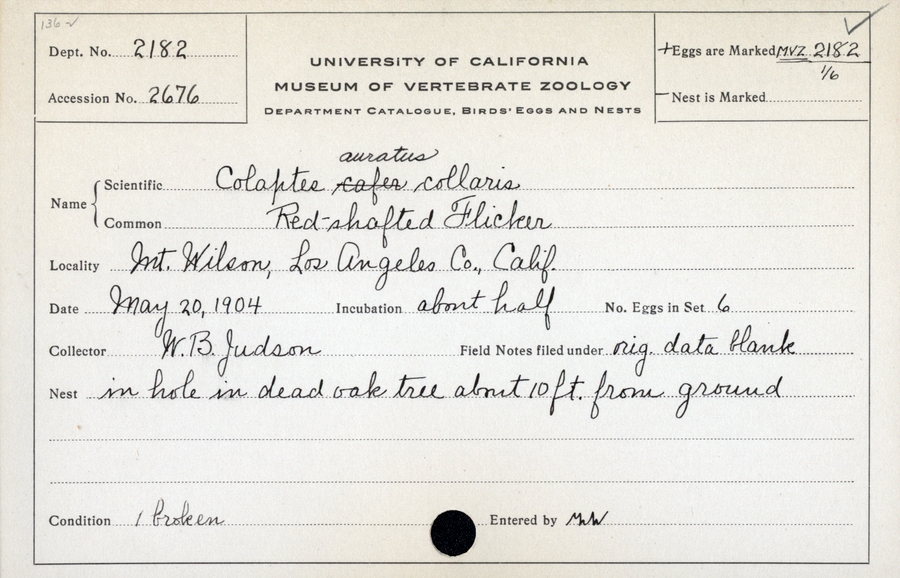 136
Dept. No. 2182
Accession No. 2676
UNIVERSITY OF CALIFORNIA
MUSEUM OF VERTEBRATE ZOOLOGY
DEPARTMENT CATALOGUE, BIRDS' EGGS AND NESTS
+Eggs are Marked MVZ 2182
1/6
Nest is Marked
auratus
Name { Scientific Colaptes cafer collaris
Common Red-shafted Flicker
Locality Mt. Wilson, Los Angeles Co., Calif.
Date May 20, 1904 Incubation about half No. Eggs in Set 6
Collector W. B. Judson Field Notes filed under orig. data blank
Nest in hole in dead oak tree about 10 ft. from ground
Condition 1 broken Entered by